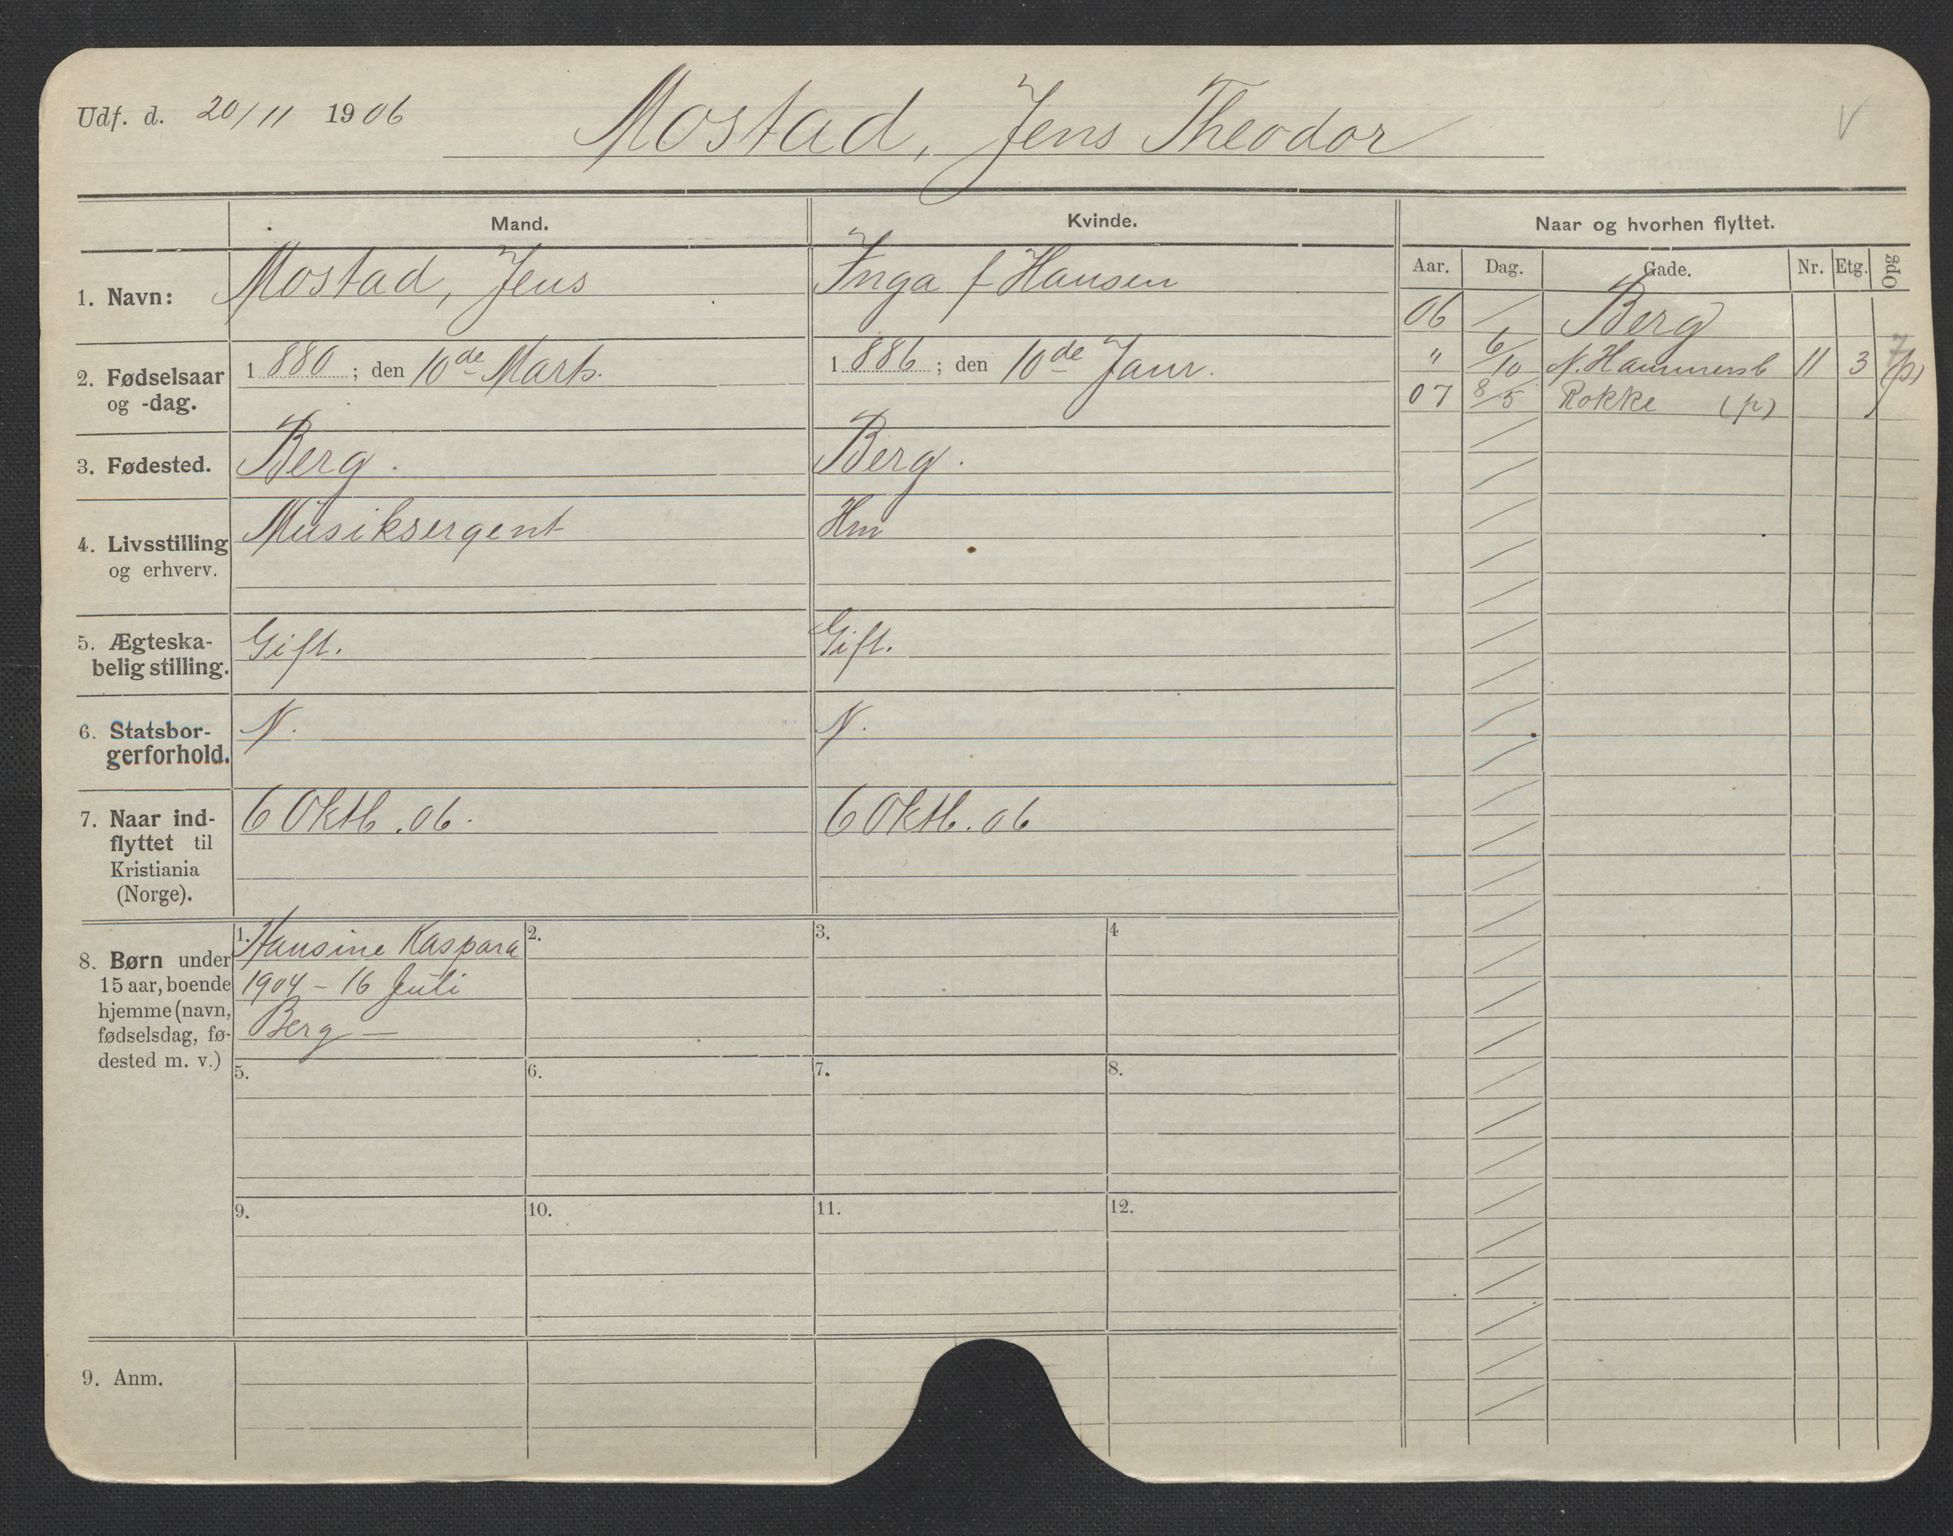 Udf. d. 20/11 1906 Mostad, Jens Theodor V
Mand. Kvinde. Naar og hvorhen flyttet.
Aar. Dag. Gade. Nr. Etg. Opg
1. Navn: Mostad, Jens Inga f Hansen
06 Berg
2. Fødselsaar 1880; den 10de Marts. 1886; den 10de Janr.
og -dag.
" 6/10 N. Hammersb 11 3 (p)
07 8/5 Rokke (p)
3. Fødested. Berg. Berg.
4. Livsstilling Musiksergent Hm
og erhverv.
5. Ægteska-
belig stilling. Gift. Gift.
6. Statsbor-
gerforhold. N. N.
7. Naar ind- 6 Oktb. 06. 6 Oktb. 06
flyttet til
Kristiania
(Norge).
8. Børn under
15 aar, boende
hjemme (navn,
fødselsdag, fø-
dested m. v.)
1. Hansine Kaspara 2. 3. 4
1904 - 16 Juli
Berg —
5. 6. 7. 8.
9. 10. 11. 12.
9. Anm.